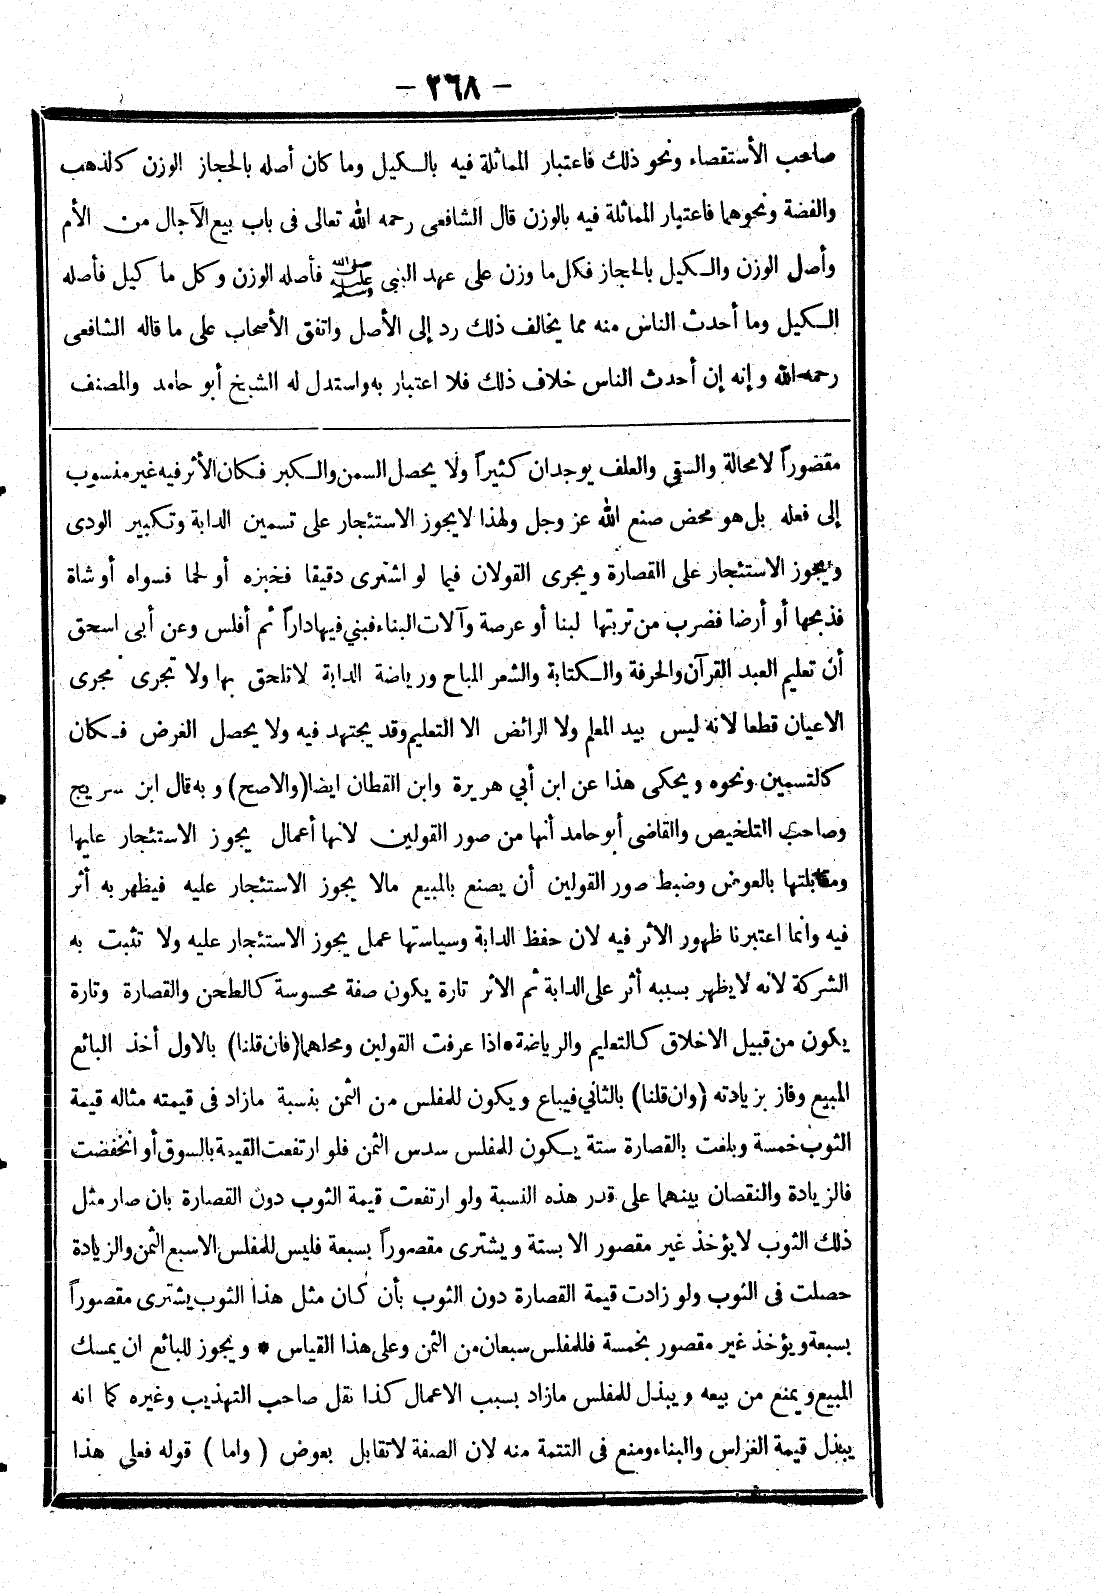 - ٢٦٨ -
صاحب الأستقصاء ونحو ذلك فاعتبار المماثلة فيه بالكيل وما كان أصله بالحجاز الوزن كالذهب
والفضة ونحوهما فاعتبار المماثلة فيه بالوزن قال الشافعى رحمه الله تعالى فى باب بيع الآجال من الأم
وأصل الوزن والكيل بالحجاز فكل ما وزن على عهد النبى ﷺ فأصله الوزن وكل ما كيل فأصله
الكيل وما أحدث الناس منه مما يخالف ذلك رد إلى الأصل واتفق الأصحاب على ما قاله الشافعى
رحمه الله وإنه إن أحدث الناس خلاف ذلك فلا اعتبار به واستدل له الشيخ أبو حامد والمصنف
مقضوراً لا محالة والسقى والعلف يوجدان كثيراً ولا يحصل السمن والكبر فكان الأثر فيه غير منسوب
إلى فعله بل هو محض صنع الله عز وجل ولهذا لا يجوز الاستئجار على تسمين الدابة وتكبير الودى
ويجوز الاستئجار على القصارة ويجرى القولان فيما لو اشترى دقيقا فخبزه أو لحما فسواه أو شاة
فذبحها أو أرضا فضرب من تربتها لبنا أو عرصة وآلات البناء فبني فيها داراً ثم أفلس وعن أبى اسحق
أن تعليم العبد القرآن والحرفة والكتابة والشعر المباح ورياضة الدابة لا تلحق بها ولا تجرى مجرى
الاعيان قطعا لانه ليس بيد المعلم ولا الرائض الا التعليم وقد يجتهد فيه ولا يحصل الغرض فكان
كالتسمين ونحوه ويحكى هذا عن ابن أبي هريرة وابن القطان ايضا (والاصح) وبه قال ابن سريج
وصاحب التلخيص والقاضى أبو حامد أنها من صور القولين لانها أعمال يجوز الاستئجار عليها
ومقابلتها بالعوض وضبط صور القولين أن يصنع بالمبيع مالا يجوز الاستئجار عليه فيظهر به أثر
فيه وانما اعتبرنا ظهور الاثر فيه لان حفظ الدابة وسياستها عمل يجوز الاستئجار عليه ولا تثبت به
الشركة لانه لا يظهر بسببه أثر على الدابة ثم الاثر تارة يكون صفة محسوسة كالطحن والقصارة وتارة
يكون من قبيل الاخلاق كالتعليم والرياضة • اذا عرفت القولين ومحلهما (فان قلنا) بالاول أخذ البائع
المبيع وفاز بزيادته (وان قلنا) بالثاني فيباع ويكون للمفلس من الثمن بنسبة مازاد فى قيمته مثاله قيمة
الثوب خمسة وبلغت بالقصارة ستة يكون للمفلس سدس الثمن فلو ارتفعت القيمة بالسوق أو انخفضت
فالزيادة والنقصان بينهما على قدر هذه النسبة ولو ارتفعت قيمة الثوب دون القصارة بان صار مثل
ذلك الثوب لا يؤخذ غير مقصور الا بستة ويشترى مقصوراً بسبعة فليس للمفلس الا سبع الثمن والزيادة
حصلت فى الثوب ولو زادت قيمة القصارة دون الثوب بأن كان مثل هذا الثوب يشترى مقصوراً
بسبعة ويؤخذ غير مقصور بخمسة فللمفلس سبعان من الثمن وعلى هذا القياس * ويجوز للبائع ان يمسك
المبيع ويمنع من بيعه ويبذل للمفلس مازاد بسبب الاعمال كذا نقل صاحب التهذيب وغيره كما انه
يبذل قيمة الغراس والبناء ومنع فى التتمة منه لان الصفة لا تقابل بعوض (واما) قوله فعلى هذا